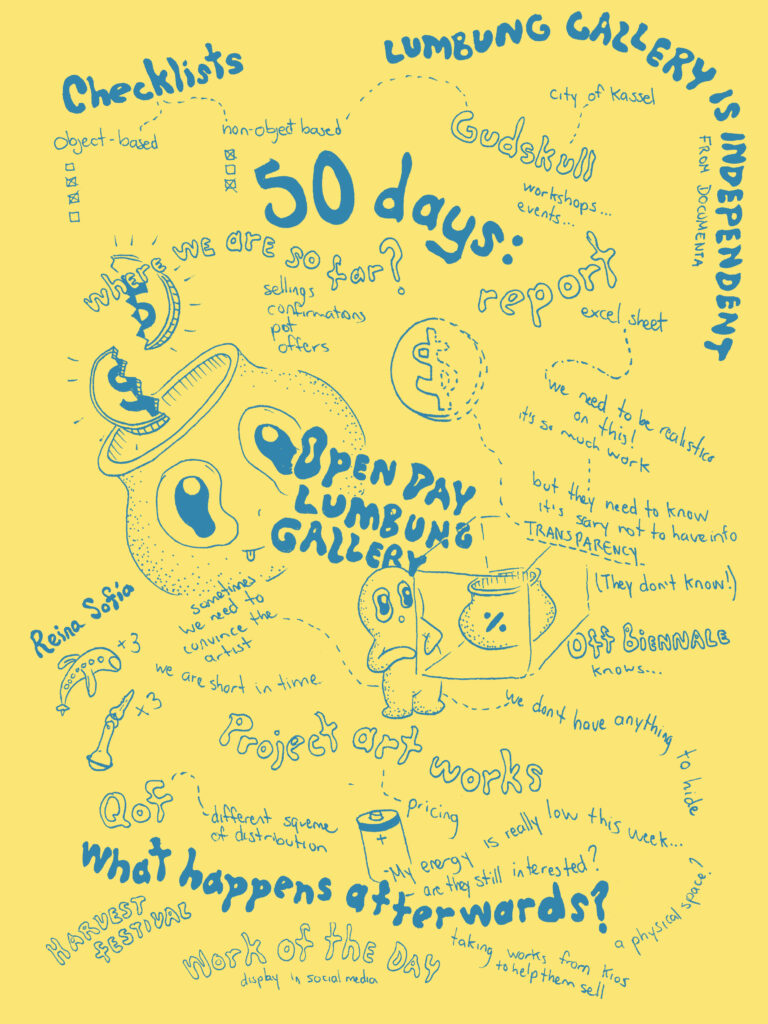 LUMBUNG GALLERY IS INDEPENDENT
FROM DOCUMENTA
Checklists
object-based
non-object based
city of Kassel
Gudskull
workshops...
events...
50 days:
where we are so far?
sellings
confirmations
pot
offers
report
excel sheet
we need to be realistics
on this!
it's so much work
but they need to know
it's scary not to have info
TRANSPARENCY
(They don't know!)
$
OPEN DAY
LUMBUNG
GALLERY
%
Off Biennale
knows...
Reina Sofía
+3
+3
sometimes
we need to
convince the
artist
we are short in time
we don't have anything to hide
Project art works
pricing
QoF
different squeme
of distribution
+
My energy is really low this week...
are they still interested?
What happens afterwards?
a physical space?
HARVEST
FESTIVAL
Work of the DAY
display in social media
taking works from Kios
to help them sell